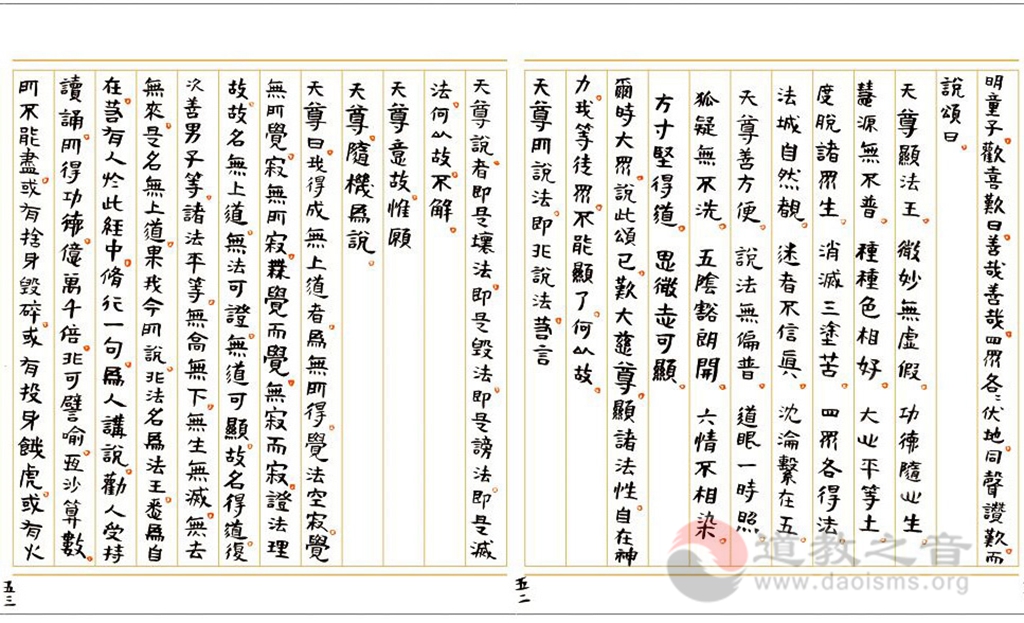 明童子歡喜歎曰。善哉善哉。四眾各〻伏地。同聲讚歎而
說頌曰。
天尊顯法王。 微妙無虛假。 功德隨心生。
慧源無不普。 種種色相好。 大心平等土。
度脫諸眾生。 消滅三塗苦。 四眾各得法。
法城自然覩。 迷者不信真。 沈淪繫在五。
天尊善方便。 說法無偏普。 道眼一時照。
狐疑無不洗。 五陰豁朗開。 六情不相染。
方寸堅得道。 思微志可顯。
爾時大眾。說此頌已。歎大慈尊。顯諸法性。自在神
力。我等徒眾。不能顯了。何以故。
天尊所說法。即非說法。若言
五二
天尊說者。即是壞法。即是毀法。即是謗法。即是滅
法。何以故。不解。
天尊意故。惟願
天尊。隨機為說。
天尊曰。我得成無上道者。為無所得。覺法空寂。覺
無所覺。寂無所寂。無覺而覺。無寂而寂。證法理
故。故名無上道。無法可證。無道可顯。故名得道。復
次善男子等。諸法平等。無高無下。無生無滅。無去
無來。是名無上道。果我今所說。非法名為法王。悉為自
在。若有人於此經中。脩行一句。為人講說。勸人受持
讀誦。所得功德。億萬千倍。非可譬喻。恆沙算數。
所不能盡。或有捨身毀碎。或有投身餓虎。或有火
五三
道教之音
www.daoisms.org